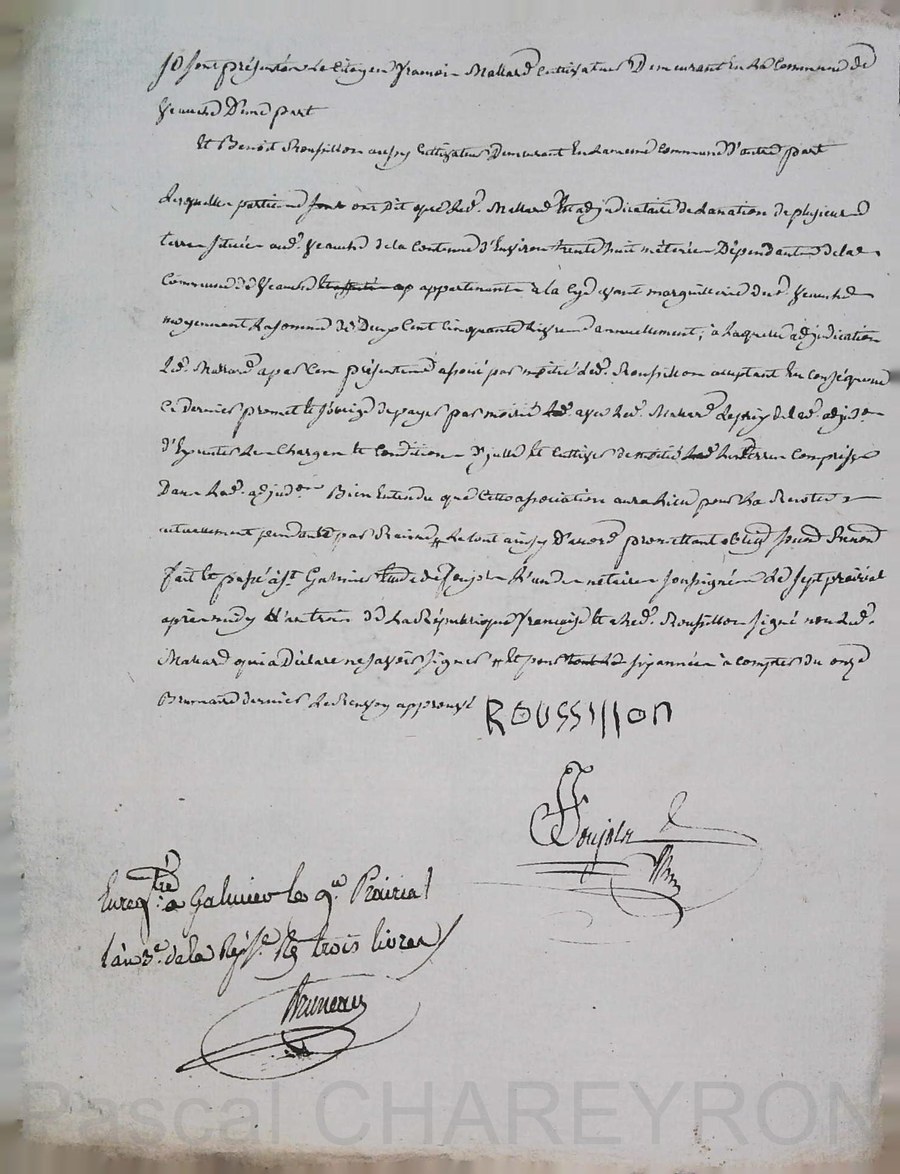 So sont présentés Le Citoyen françois Mallard Cultivateur Demeurant En La Commune de
Veauche D'une part
Et Benoit Roussillon aussy Cultivateur Demeurant En la meme Commune D'autre part
Lesquelles parties ont Dit que Led. Mallard adjudicataire de la nation de plusieurs
terres située aud. Veauche de la Contenue d'Environ trente huit méterée Dépendante de la
Commune de Veauche appartenante à la Cy devant marguillerie dud. Veauche
moyennant La somme de Deux Cent Cinquante livres annuellement ; à Laquelle adjudication
Led. Mallard a par Ces présentes associé par moitié Led. Roussillon acceptant En Conséquence
Ce dernier promet de payer par moitié avec Led. Mallard Le prix de lad. adjud.on
d'Executer Les Charges Et Conditions Et Cultiver de moitié Les terres Comprise
Dans Lad. adjud.on Bien Entendu que Cette association aura Lieu pour La Recolte
actuellement pendante par Racine # Le tout ainsy D'accord promettant obligé
fait Et passé à St Galmier Etude de Poujols L'un des notaires Soussignés Le Sept prairial
après midy L'an trois De La République francaise Et a Led. Roussillon signé non Led.
Mallard qui a Déclaré ne savoir signer # Et pour six années à compter du onze
Brumaire dernier Le Renvoy approuvé
ROUSSILLON
Enregtré à Galmier le 9e Prairial
l'an 3e de la Rép. trois livres
Bruneau
Pascal CHAREYRON